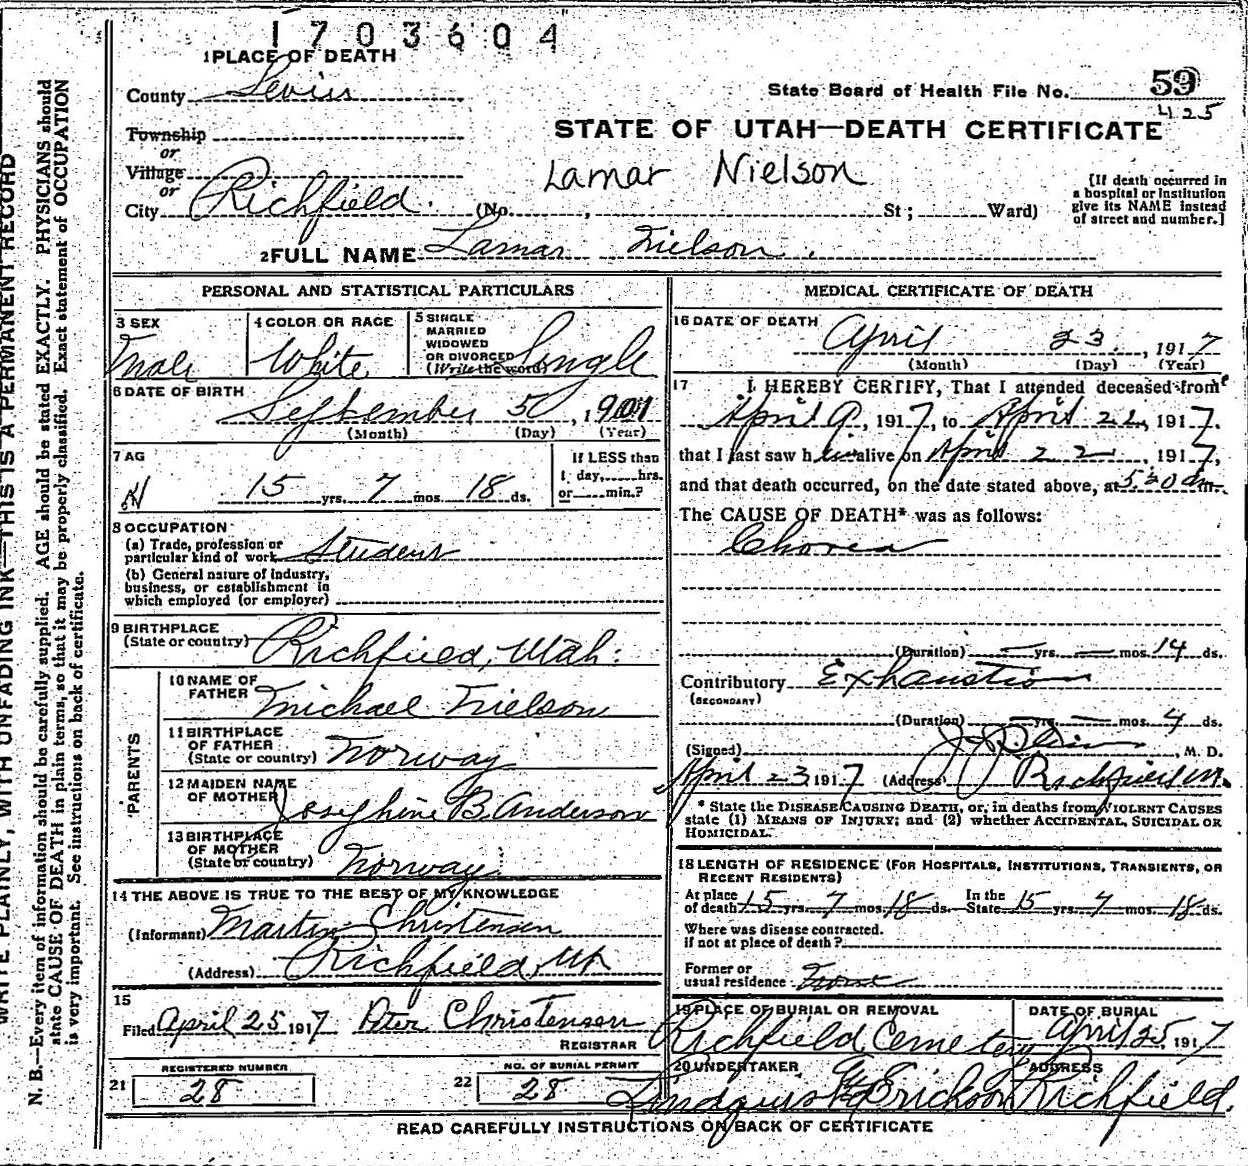 1703604
1 PLACE OF DEATH
County Sevier
State Board of Health File No. 59
425
Township
or
Village
or
City Richfield. (No. , St; Ward)
STATE OF UTAH—DEATH CERTIFICATE
Lamar Nielson
[If death occurred in a hospital or institution give its NAME instead of street and number.]
2 FULL NAME Lamar Nielson.
PERSONAL AND STATISTICAL PARTICULARS
3 SEX Male
4 COLOR OR RACE White
5 SINGLE MARRIED WIDOWED OR DIVORCED (Write the word) Single
6 DATE OF BIRTH
September 5, 1901
(Month) (Day) (Year)
7 AG
15 yrs. 7 mos. 18 ds.
If LESS than
1 day, hrs.
or min.?
8 OCCUPATION
(a) Trade, profession or
particular kind of work Student
(b) General nature of industry,
business, or establishment in
which employed (or employer)
9 BIRTHPLACE
(State or country) Richfield, Utah.
PARENTS
10 NAME OF
FATHER Michael Nielson
11 BIRTHPLACE
OF FATHER
(State or country) Norway
12 MAIDEN NAME
OF MOTHER Josephine B. Anderson
13 BIRTHPLACE
OF MOTHER
(State or country) Norway.
14 THE ABOVE IS TRUE TO THE BEST OF MY KNOWLEDGE
(Informant) Martin Christensen
(Address) Richfield, Ut
15
Filed April 25 1917 Peter Christensen
REGISTRAR
21 REGISTERED NUMBER 28
22 NO. OF BURIAL PERMIT 28
MEDICAL CERTIFICATE OF DEATH
16 DATE OF DEATH
April 23, 1917
(Month) (Day) (Year)
17 I HEREBY CERTIFY, That I attended deceased from
April 9, 1917, to April 22, 1917.
that I last saw him alive on April 22, 1917,
and that death occurred, on the date stated above, at 5:20 a m.
The CAUSE OF DEATH* was as follows:
Chorea
(Duration) — yrs. — mos. 14 ds.
Contributory Exhaustion
(SECONDARY)
(Duration) — yrs. — mos. 4 ds.
(Signed) M. D.
April 23 1917 (Address) Richfield
* State the DISEASE CAUSING DEATH, or, in deaths from VIOLENT CAUSES
state (1) MEANS OF INJURY; and (2) whether ACCIDENTAL, SUICIDAL OR
HOMICIDAL.
18 LENGTH OF RESIDENCE (FOR HOSPITALS, INSTITUTIONS, TRANSIENTS, OR
RECENT RESIDENTS)
At place of death 15 yrs. 7 mos. 18 ds. In the State 15 yrs. 7 mos. 18 ds.
Where was disease contracted.
if not at place of death?
Former or
usual residence None
19 PLACE OF BURIAL OR REMOVAL
Richfield Cemetery
DATE OF BURIAL
April 25 1917
20 UNDERTAKER
Lindquist & Erickson
ADDRESS
Richfield.
READ CAREFULLY INSTRUCTIONS ON BACK OF CERTIFICATE
WRITE PLAINLY, WITH UNFADING INK—THIS IS A PERMANENT RECORD
N. B.—Every item of information should be carefully supplied. AGE should be stated EXACTLY. PHYSICIANS should
state CAUSE OF DEATH in plain terms, so that it may be properly classified. Exact statement of OCCUPATION
is very important. See instructions on back of certificate.